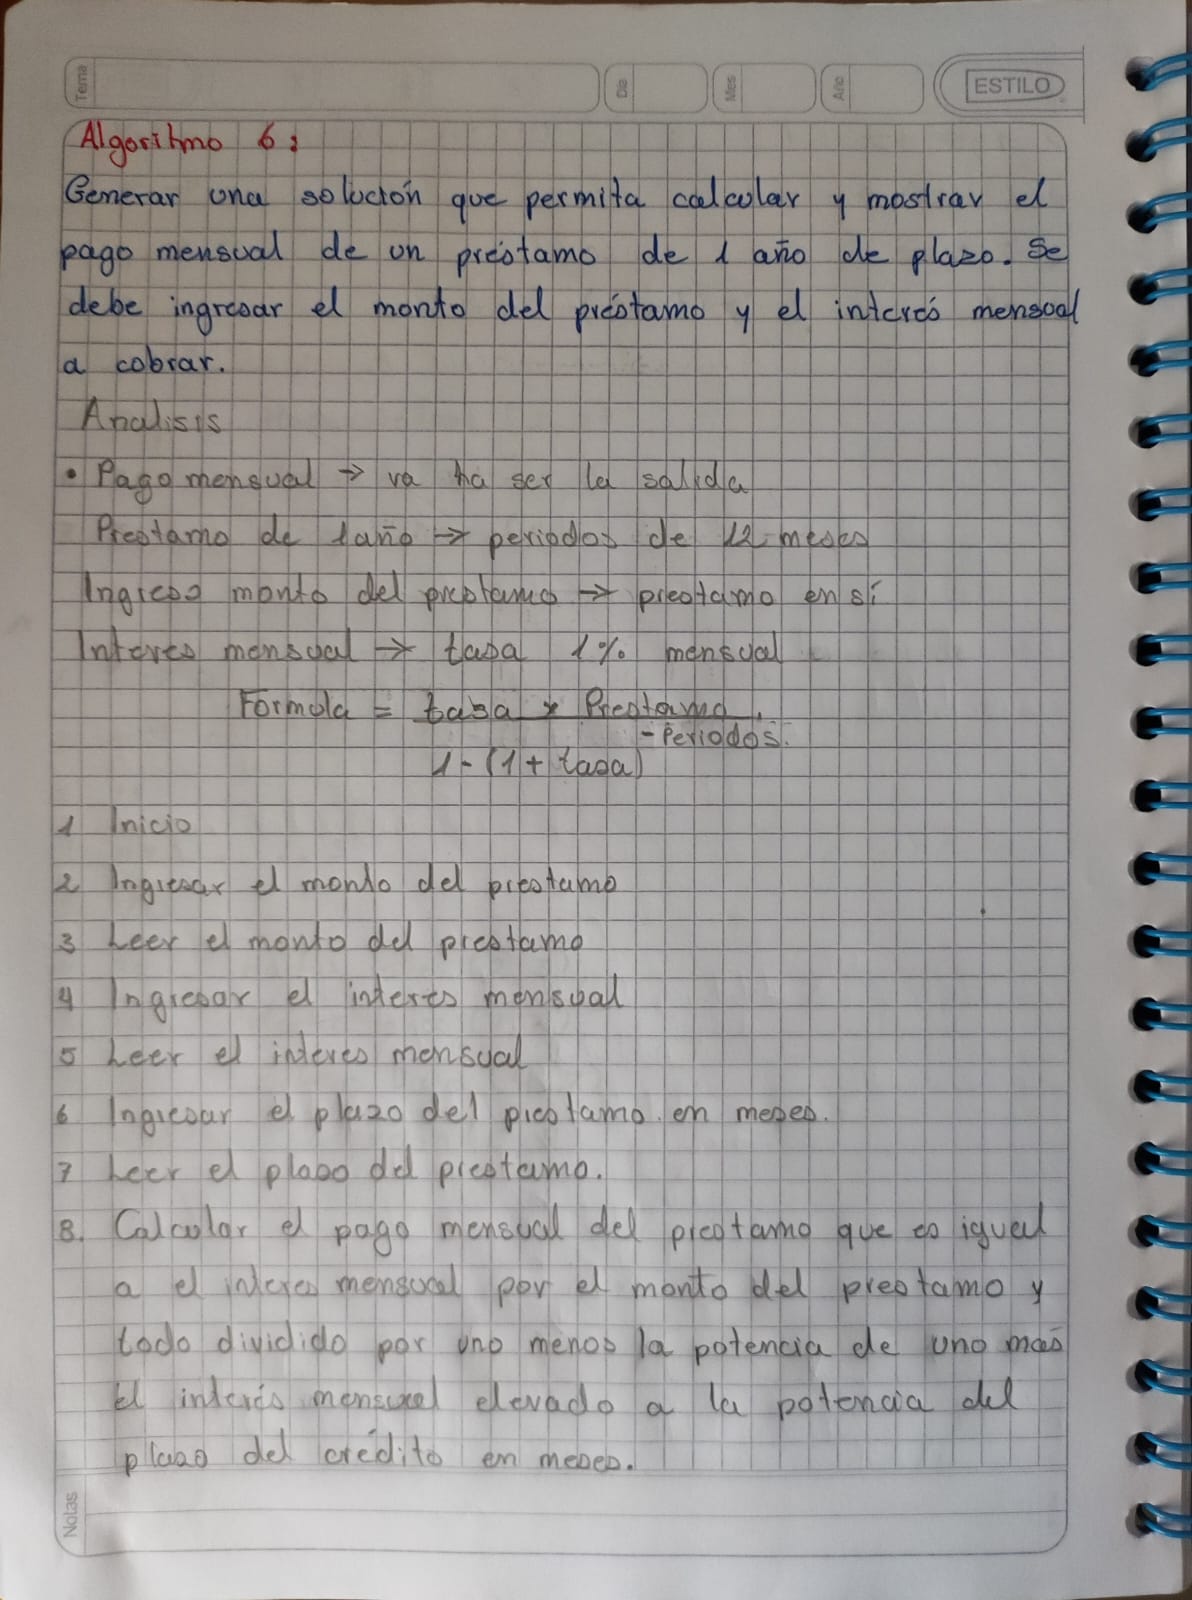 Tema Dia Mes Año ESTILO
Algoritmo 6:
Generar una solución que permita calcular y mostrar el
pago mensual de un préstamo de 1 año de plazo. Se
debe ingresar el monto del préstamo y el interés mensual
a cobrar.
Analisis
• Pago mensual → va ha ser la salida
Prestamo de 1 año → periodos de 12 meses
Ingreso monto del prestamo → prestamo en sí
Interes mensual → tasa 1% mensual
Formula = tasa x Prestamo
-Periodos.
1-(1+ tasa)
1 Inicio
2 Ingresar el monto del prestamo
3 Leer el monto del prestamo
4 Ingresar el interes mensual
5 Leer el interes mensual
6 Ingresar el plazo del prestamo en meses.
7 Leer el plaso del prestamo.
8. Calcular el pago mensual del prestamo que es igual
a el interes mensual por el monto del prestamo y
todo dividido por uno menos la potencia de uno mas
el interés mensual elevado a la potencia del
plazo del crédito en meses.
Notas